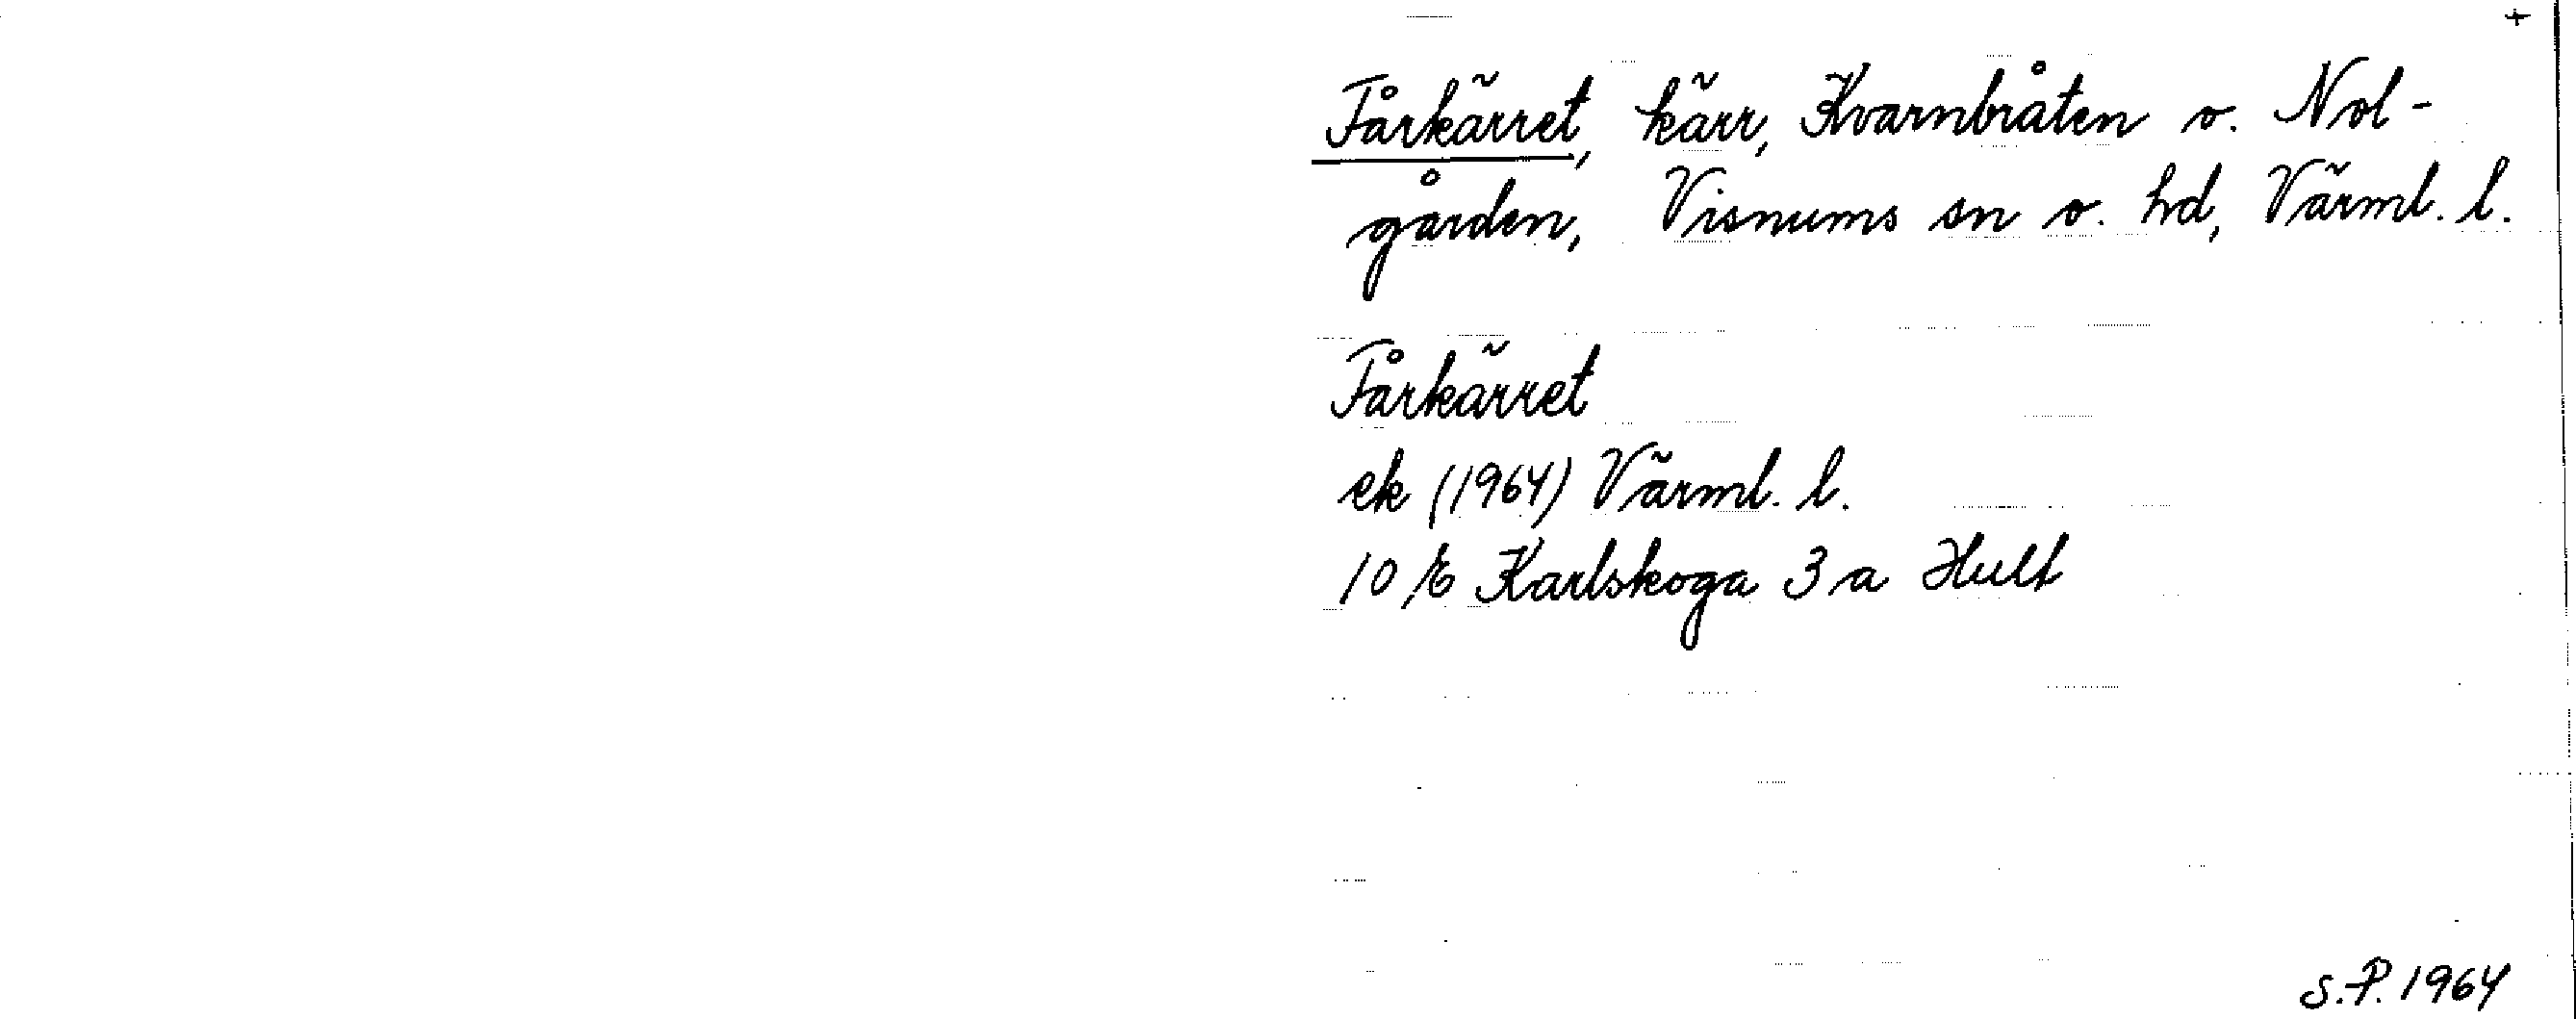 +
Fårkärret, kärr, Kvarnbråten o. Nol-
gården, Visnums sn o. hd, Värml. l.
Fårkärret
ek (1964) Värml. l.
10 E Karlskoga 3 a Hult
S.P. 1964